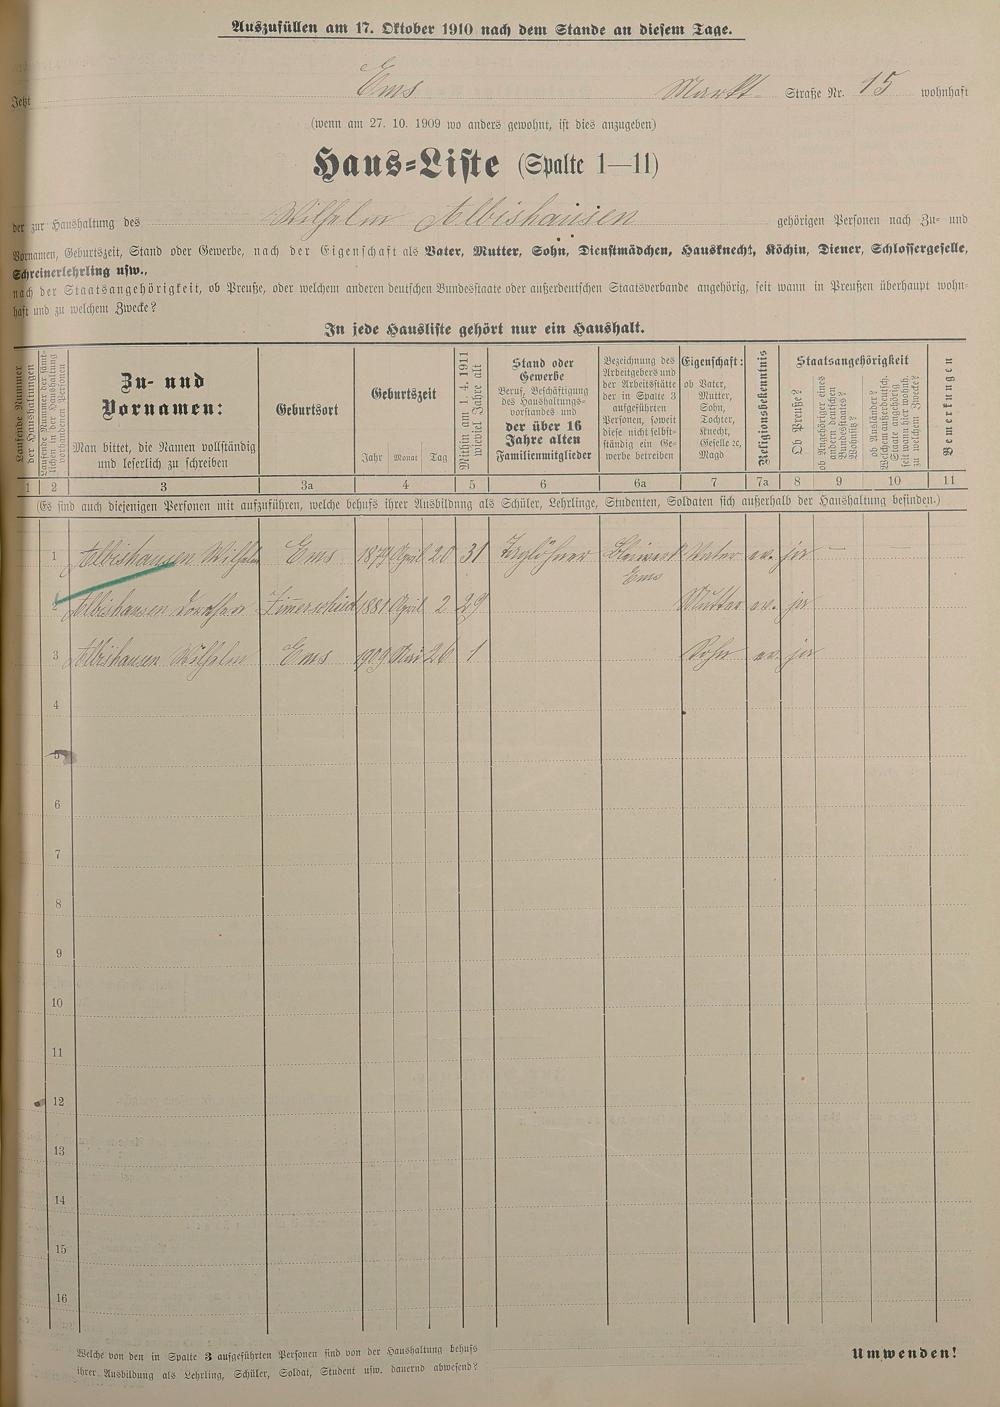 Auszufüllen am 17. Oktober 1910 nach dem Stande an diesem Tage.
Jetzt Ems Markt Straße Nr. 15 wohnhaft
(wenn am 27. 10. 1909 wo anders gewohnt, ist dies anzugeben)
Haus-Liste (Spalte 1—11)
der zur Haushaltung des Wilhelm Albishausen gehörigen Personen nach Zu- und
Vornamen, Geburtszeit, Stand oder Gewerbe, nach der Eigenschaft als Vater, Mutter, Sohn, Dienstmädchen, Hausknecht, Köchin, Diener, Schlossergeselle,
Schreinerlehrling usw.,
nach der Staatsangehörigkeit, ob Preuße, oder welchem anderen deutschen Bundesstaate oder außerdeutschen Staatsverbande angehörig, seit wann in Preußen überhaupt wohn-
haft und zu welchem Zwecke?
In jede Hausliste gehört nur ein Haushalt.
Laufende Nummer
der Haushaltungen
Laufende Nummer der sämt-
lichen in der Haushaltung
vorhandenen Personen
Zu- und
Vornamen:
Man bittet, die Namen vollständig
und leserlich zu schreiben
Geburtsort
Geburtszeit
Jahr Monat Tag
Mithin am 1. 4. 1911
wieviel Jahre alt
Stand oder
Gewerbe
Beruf, Beschäftigung
des Haushaltungs-
vorstandes und
der über 16
Jahre alten
Familienmitglieder
Bezeichnung des
Arbeitgebers und
der Arbeitsstätte
der in Spalte 3
aufgeführten
Personen, soweit
diese nicht selbst-
ständig ein Ge-
werbe betreiben
Eigenschaft:
ob Vater,
Mutter,
Sohn,
Tochter,
Knecht,
Geselle ꝛc,
Magd
Religionsbekenntnis
Staatsangehörigkeit
Ob Preuße?
ob Angehöriger eines
andern deutschen
Bundesstaates?
Wohnsitz?
ob Ausländer?
Welchem außerdeutsch.
Staate angehörig
seit wann hier wohnh.
zu welchem Zwecke?
Bemerkungen
1 2 3 3a 4 5 6 6a 7 7a 8 9 10 11
(Es sind auch diejenigen Personen mit aufzuführen, welche behufs ihrer Ausbildung als Schüler, Lehrlinge, Studenten, Soldaten sich außerhalb der Haushaltung befinden.)
1 Albishausen Wilhelm Ems 1879 April 20 31 Taglöhner Bleiwerk Vater ev. ja —
Ems
2 Albishausen Dorothea Zimmerschied 1881 April 2 29 Mutter ev. ja
3 Albishausen Wilhelm Ems 1909 Mai 26 1 Sohn ev. ja
4
5
6
7
8
9
10
11
12
13
14
15
16
Welche von den in Spalte 3 aufgeführten Personen sind von der Haushaltung behufs
ihrer Ausbildung als Lehrling, Schüler, Soldat, Student usw. dauernd abwesend?
Umwenden!